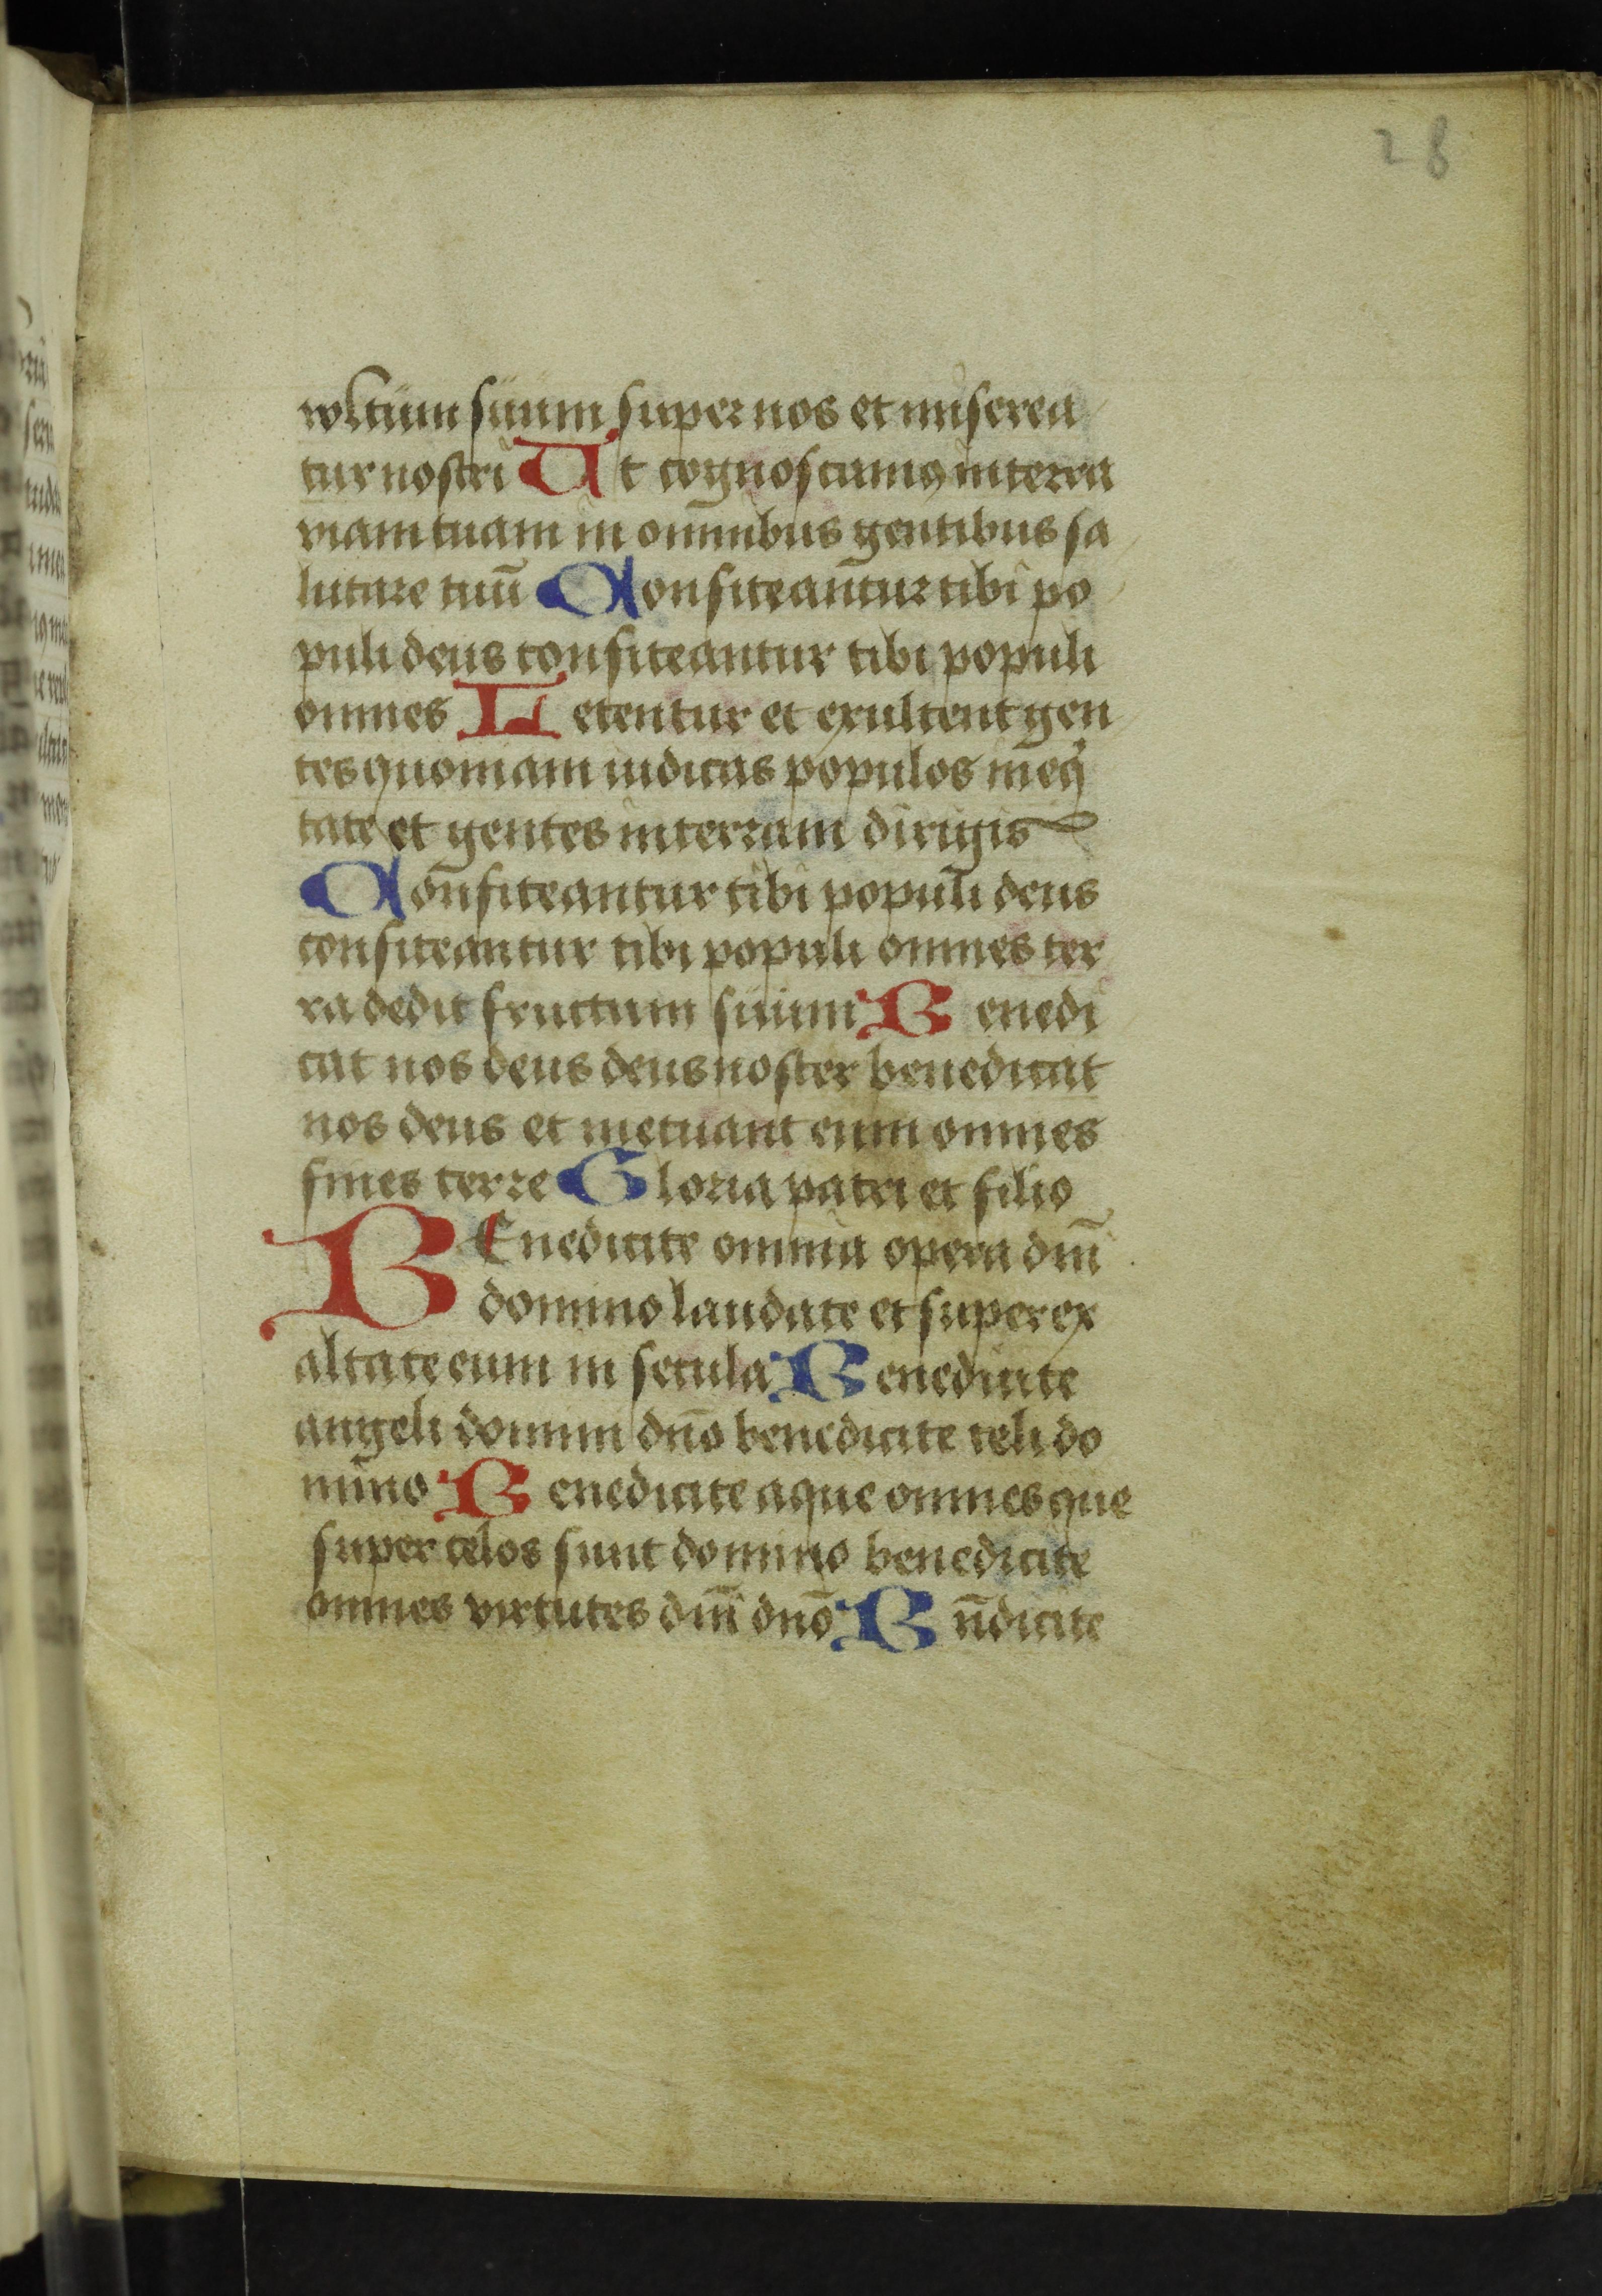 28
wltum suum super nos et miserea
tur nostri Ut cognoscamꝯ in terra
viam tuam in omnibus gentibus sa
lutare tuū Confiteantur tibi po
puli deus confiteantur tibi populi
omnes Letentur et exultent gen
tes quoniam iudicas populos in eq̇
tate et gentes in terram dirigis
Confiteantur tibi populi deus
confiteantur tibi populi omnes ter
ra dedit fructum suum Benedi
cat nos deus deus noster benedicat
nos deus et metuant eum omnes
fines terre Gloria patri et filio
BEnedicite omnia opera dm̄
domino laudate et super ex
altate eum in secula Benedicite
angeli domini dn̄o benedicite celi do
mino Benedicite aque omnes que
super celos sunt domino benedicite
omnes virtutes dm̄ dn̄o Bn̄dicite